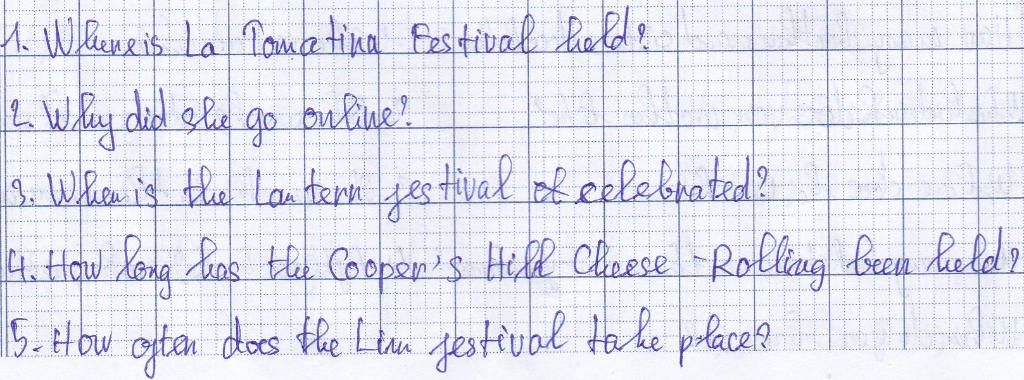 1. Where is La Tomatina Festival held?
2. Why did she go online?
3. When is the Lantern festival of celebrated?
4. How long has the Cooper's Hill Cheese-Rolling been held?
5. How often does the Lim festival take place?